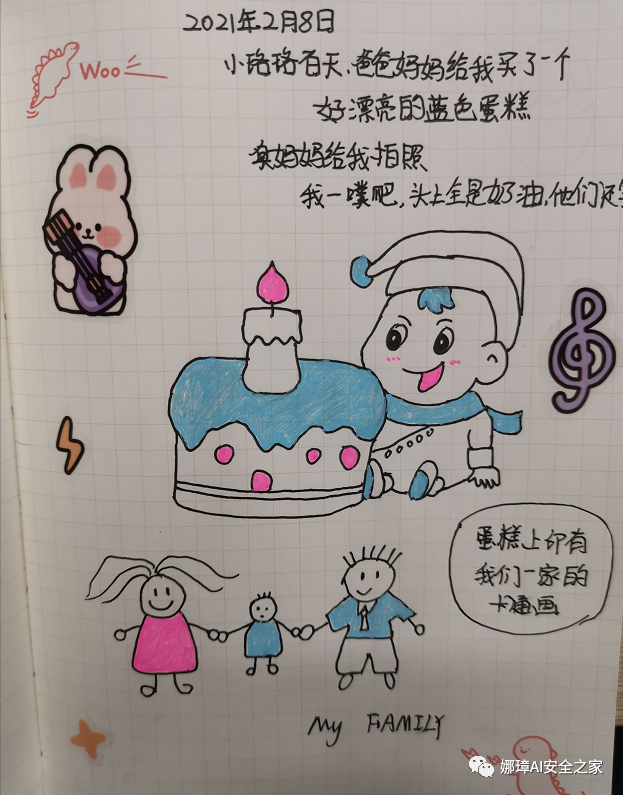 2021年2月8日
Woo
小珞珞百天,爸爸妈妈给我买了一个
好漂亮的蓝色蛋糕
妈妈给我拍照
我一噗吧,头上全是奶油,他们还
蛋糕上印有
我们一家的
卡通画
My FAMILY
娜璋AI安全之家